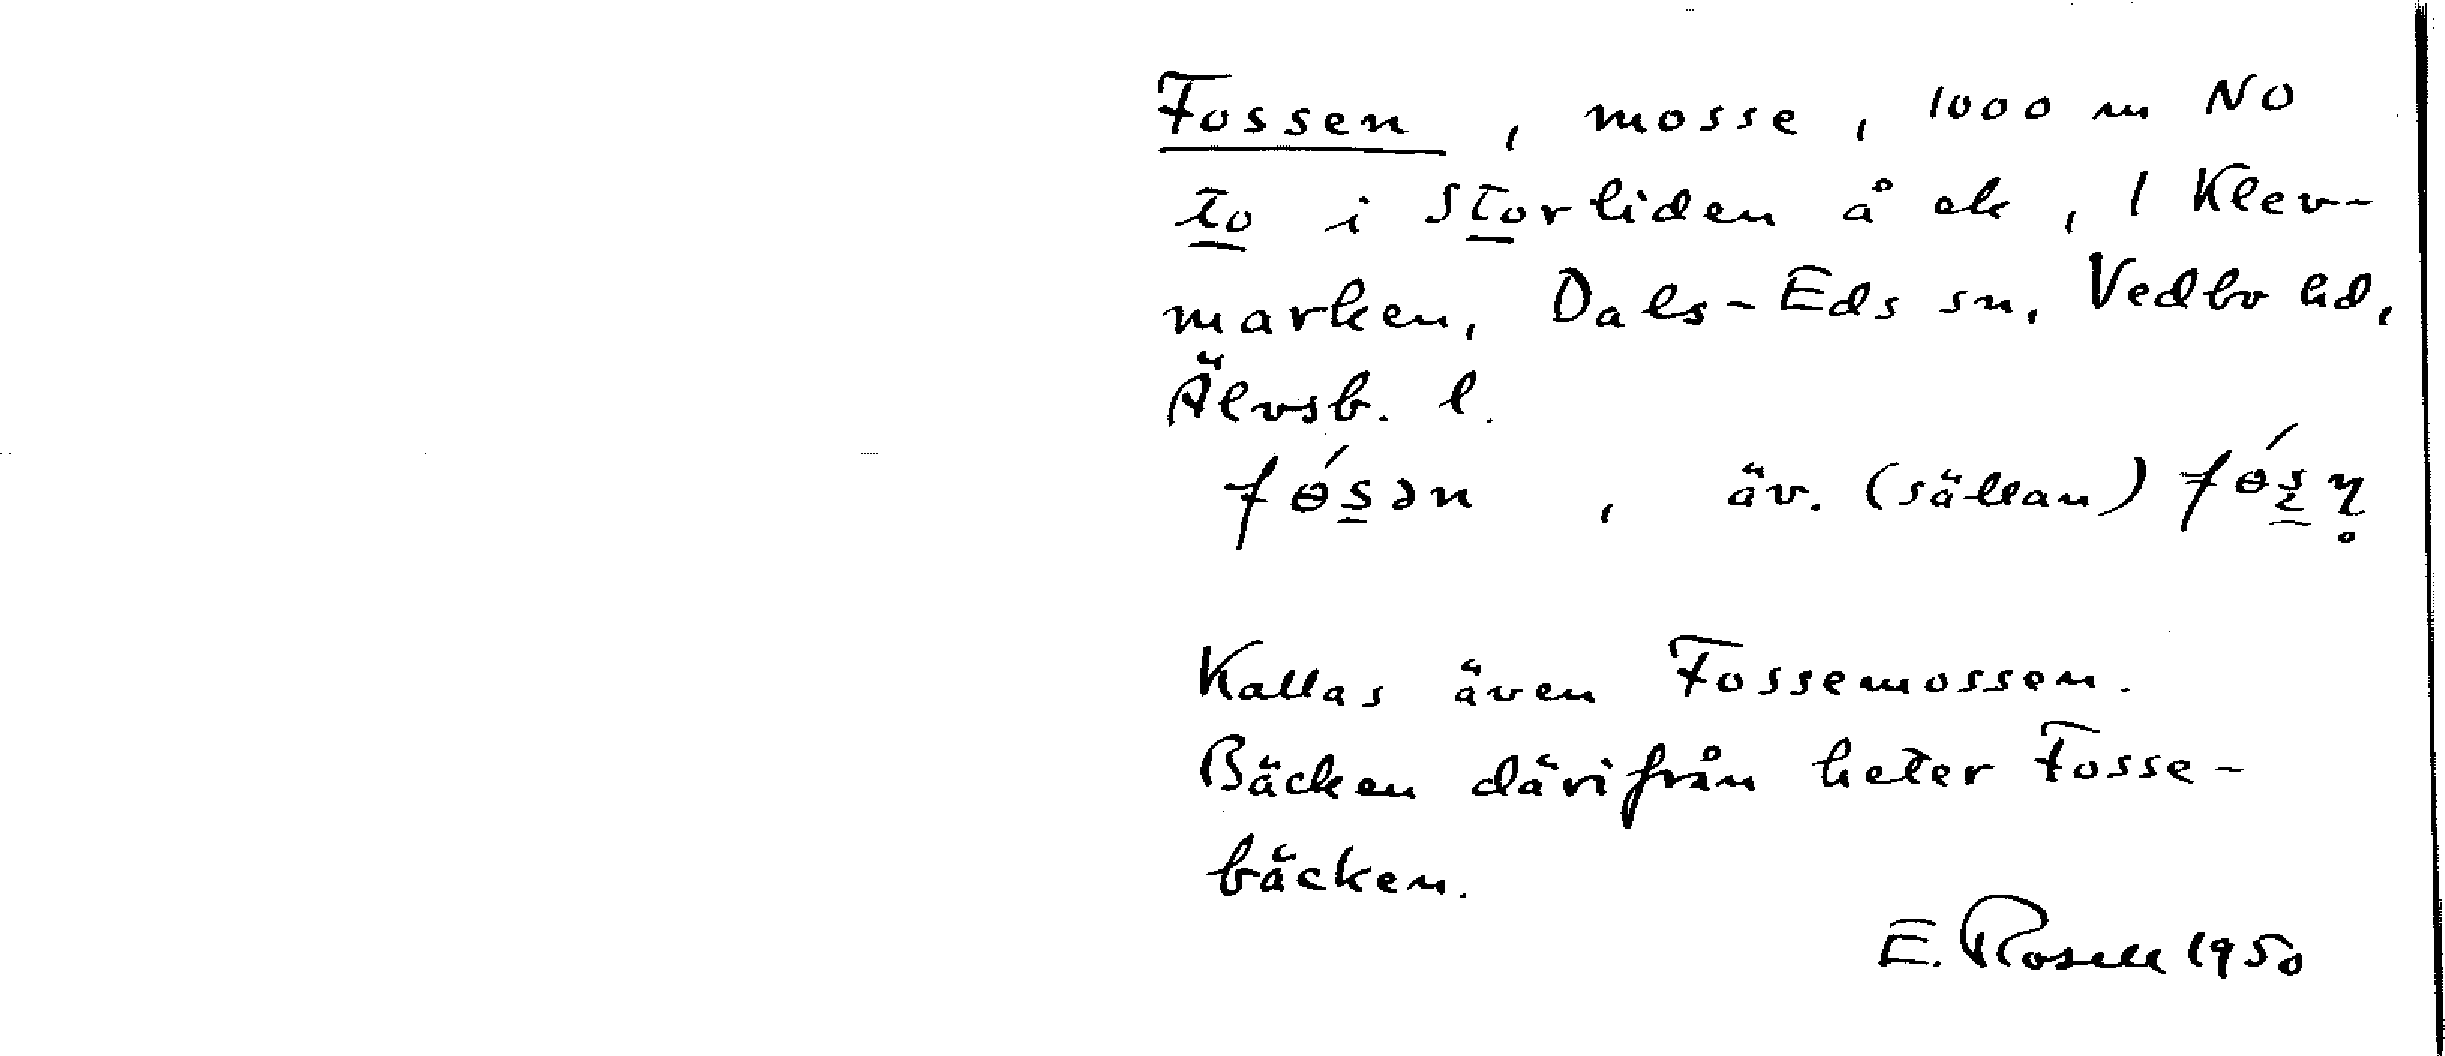 Fossen, mosse, 1000 m NO
to i Storliden å ek, 1 Klev-
marken, Dals-Eds sn, Vedbo hd,
Älvsb. l.
fɵ́s̲ən, äv. (sällan)
Kallas även Fossemossen.
Bäcken därifrån heter Fosse-
bäcken.
E. Rosell 1950